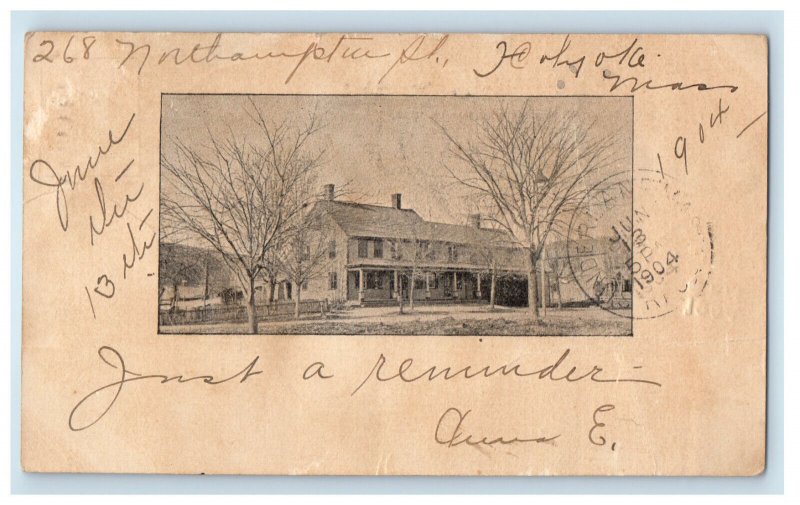 268 Northampton St., Holyoke
Mass
1904
June
13th
Just a reminder—
Anna E.
JUN
1904